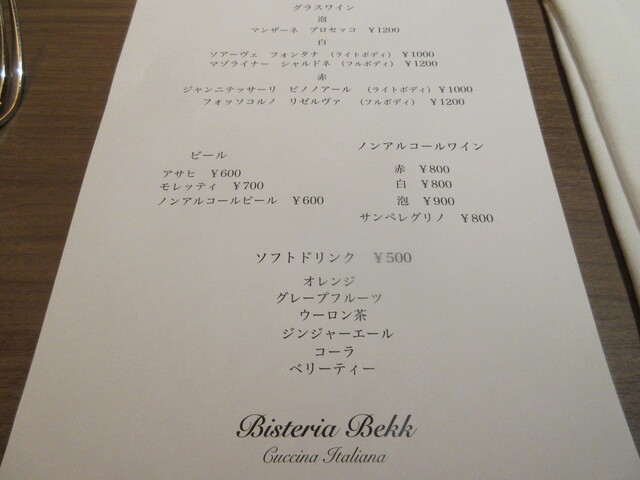 グラスワイン
泡
マンザーネ プロセッコ ￥1200
白
ソアーヴェ フォンタナ （ライトボディ）￥1000
マゾライナー シャルドネ（フルボディ）￥1200
赤
ジャンニテッサーリ ピノノアール （ライトボディ）￥1000
フォッソコルノ リゼルヴァ （フルボディ）￥1200
ビール
アサヒ ￥600
モレッティ ￥700
ノンアルコールビール ￥600
ノンアルコールワイン
赤 ￥800
白 ￥800
泡 ￥900
サンペレグリノ ￥800
ソフトドリンク ￥500
オレンジ
グレープフルーツ
ウーロン茶
ジンジャーエール
コーラ
ベリーティー
Bisteria Bekk
Cuccina Italiana